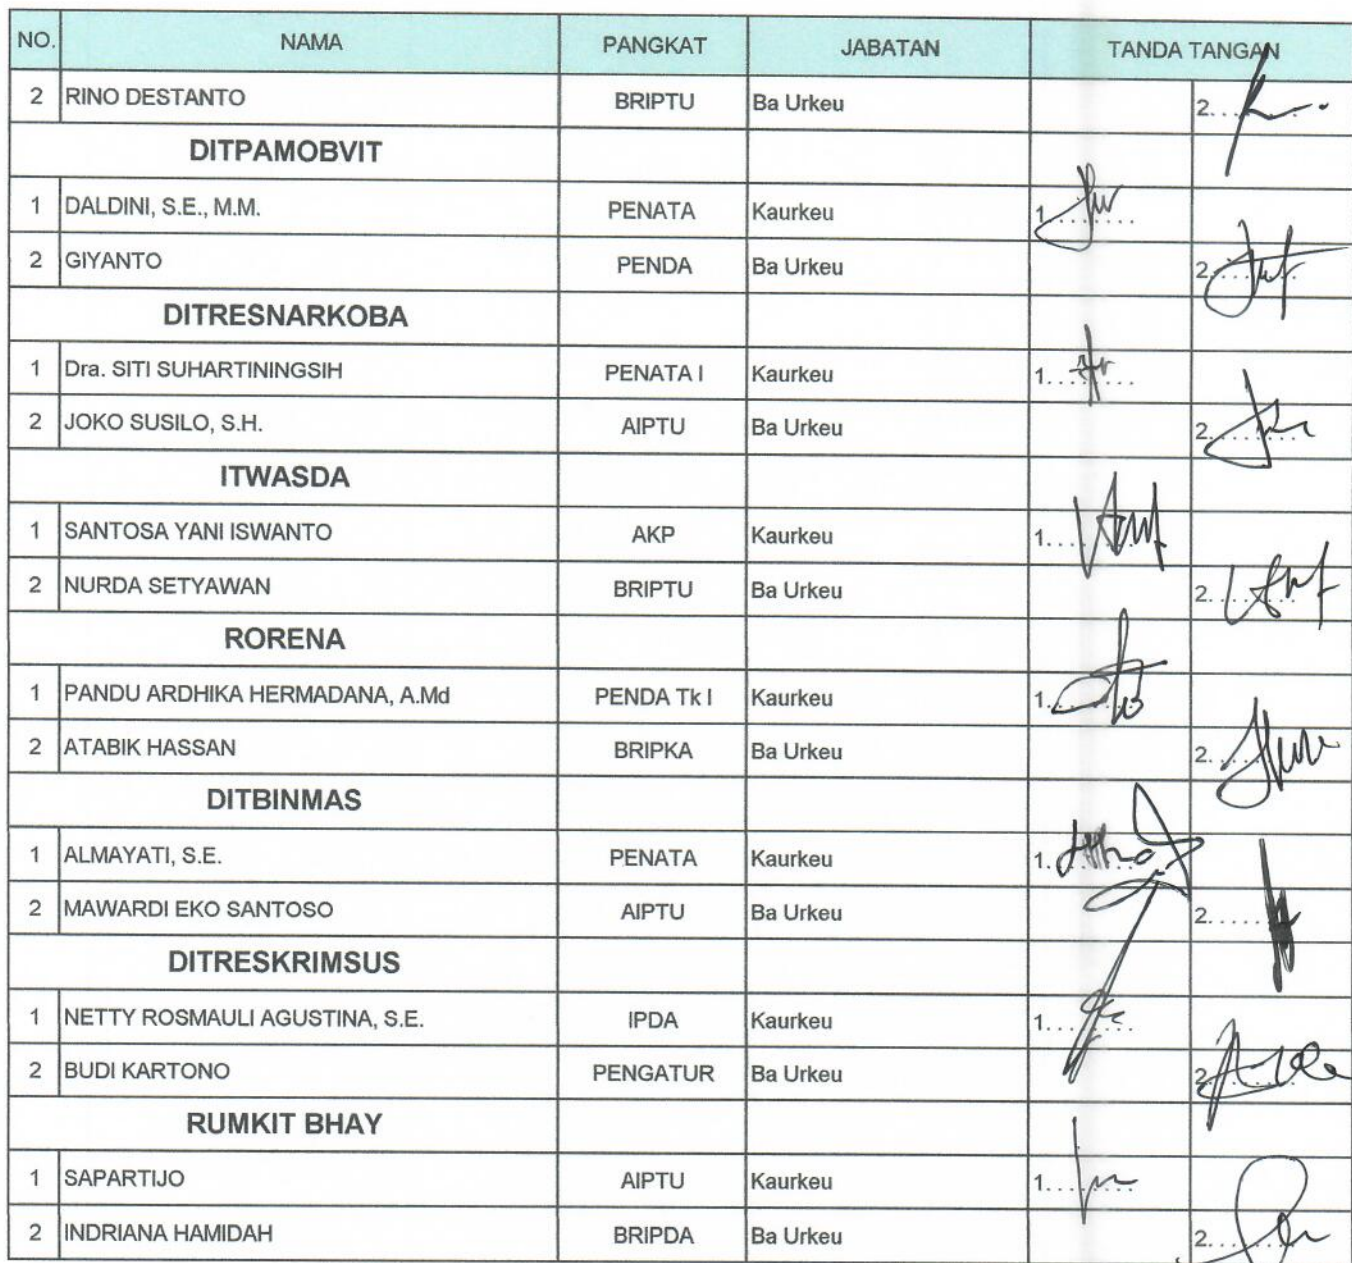 NO. NAMA PANGKAT JABATAN TANDA TANGAN
2 RINO DESTANTO BRIPTU Ba Urkeu 2.........
DITPAMOBVIT
1 DALDINI, S.E., M.M. PENATA Kaurkeu 1.........
2 GIYANTO PENDA Ba Urkeu 2.........
DITRESNARKOBA
1 Dra. SITI SUHARTININGSIH PENATA I Kaurkeu 1.........
2 JOKO SUSILO, S.H. AIPTU Ba Urkeu 2.........
ITWASDA
1 SANTOSA YANI ISWANTO AKP Kaurkeu 1.........
2 NURDA SETYAWAN BRIPTU Ba Urkeu 2.........
RORENA
1 PANDU ARDHIKA HERMADANA, A.Md PENDA Tk I Kaurkeu 1.........
2 ATABIK HASSAN BRIPKA Ba Urkeu 2.........
DITBINMAS
1 ALMAYATI, S.E. PENATA Kaurkeu 1.........
2 MAWARDI EKO SANTOSO AIPTU Ba Urkeu 2.........
DITRESKRIMSUS
1 NETTY ROSMAULI AGUSTINA, S.E. IPDA Kaurkeu 1.........
2 BUDI KARTONO PENGATUR Ba Urkeu 2.........
RUMKIT BHAY
1 SAPARTIJO AIPTU Kaurkeu 1.........
2 INDRIANA HAMIDAH BRIPDA Ba Urkeu 2.........